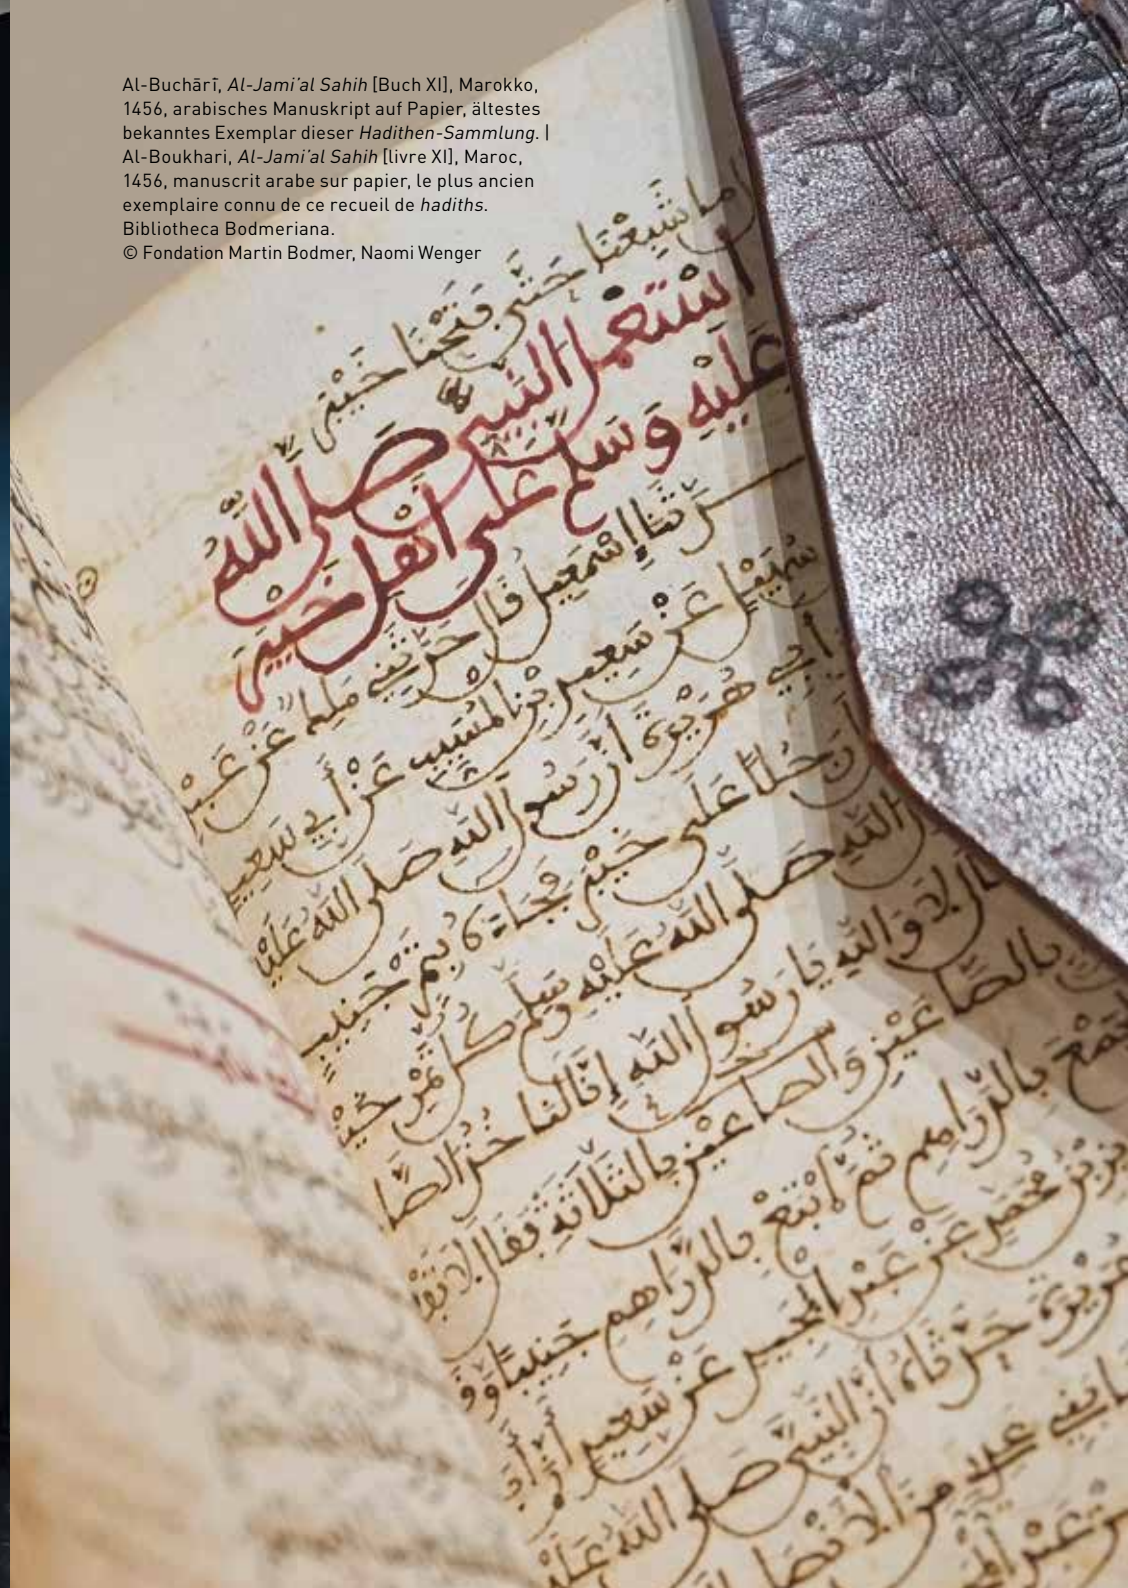 Al-Buchārī, Al-Jami'al Sahih [Buch XI], Marokko,
1456, arabisches Manuskript auf Papier, ältestes
bekanntes Exemplar dieser Hadithen-Sammlung. |
Al-Boukhari, Al-Jami'al Sahih [livre XI], Maroc,
1456, manuscrit arabe sur papier, le plus ancien
exemplaire connu de ce recueil de hadiths.
Bibliotheca Bodmeriana.
© Fondation Martin Bodmer, Naomi Wenger
ما شَبِعْنَا حَتَّى فَتَحْنَا خَيْبَر
اسْتَعْمَلَ النَّبِيّ صَلَّى اللَّهُ
عَلَيْهِ وَسَلَّم عَلَى أَهْلِ خَيْبَر
حدثنا إِسْمَعِيلُ قَالَ حَدَّثَنِي مَلِك عَنْ عَبْدِ
سُهَيْلٍ عَنْ سَعِيدِ بْنِ الْمُسَيِّبِ عَنْ أَبِي سَعِيدٍ
أَبِي هُرَيْرَةَ أَنَّ رَسُولَ اللَّهِ صَلَّى اللَّهُ عَلَيْهِ
رَجُلًا عَلَى خَيْبَرَ فَجَاءَهُ بِتَمْرٍ جَنِيبٍ
اللَّهِ صَلَّى اللَّهُ عَلَيْهِ وَسَلَّمَ كُلُّ تَمْرِ خَيْبَر
قال لَا وَاللَّهِ يَا رَسُولَ اللَّهِ إِنَّا لَنَأْخُذُ الصَّا
بِالصَّاعَيْنِ وَالصَّاعَيْنِ بِالثَّلَاثَةِ فَقَالَ لَا تَفْ
الْجَمْعَ بِالدَّرَاهِمِ ثُمَّ ابْتَعْ بِالدَّرَاهِمِ جَنِيبًا وَقَ
بْنُ مُحَمَّدٍ عَنْ عَبْدِ الْمَجِيدِ عَنْ سَعِيدٍ أَنَّ أَبَا
هُرَيْرَةَ حَدَّثَاهُ أَنَّ النَّبِيَّ صَلَّى اللَّهُ عَلَيْهِ
بَنِي عَدِيٍّ مِنَ الْأَنْصَارِ
عَنْ عَبْدِ الْمَجِيدِ